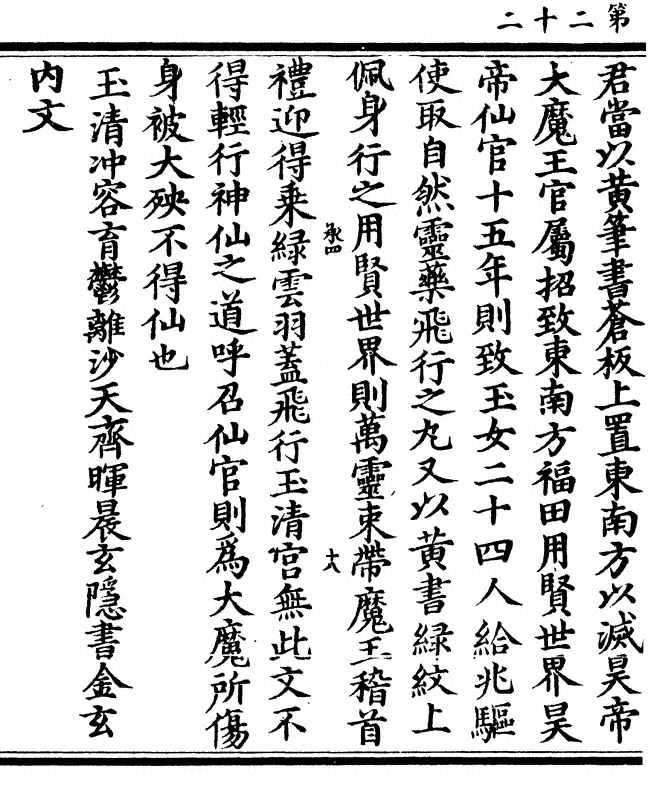 第二十二
君當以黃筆書蒼板上置東南方以滅昊帝
大魔王官屬招致東南方福田用賢世界昊
帝仙官十五年則致玉女二十四人給兆驅
使取自然靈藥飛行之丸又以黃書緑紋上
佩身行之用賢世界則萬靈束帶魔王稽首
承四
十八
禮迎得乗緑雲羽蓋飛行玉清宫無此文不
得輕行神仙之道呼召仙官則爲大魔所傷
身被大殃不得仙也
玉清冲容育鬱離沙天齊暉晨玄隱書金玄
内文